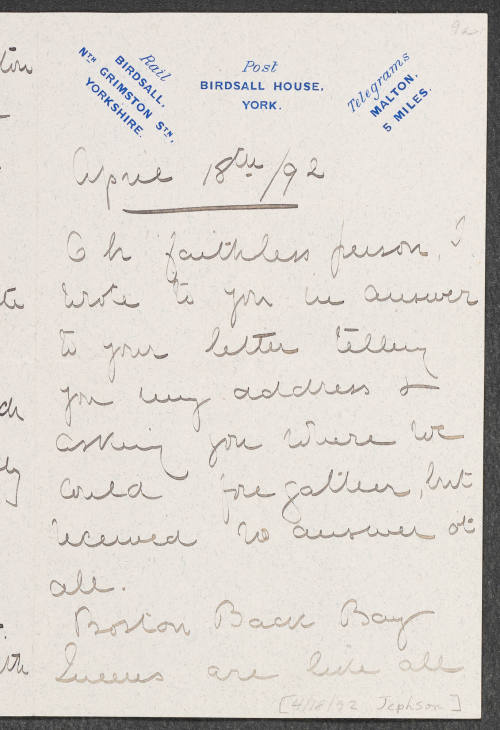 9a
Rail
BIRDSALL,
NTH GRIMSTON STN,
YORKSHIRE.
Post
BIRDSALL HOUSE,
YORK.
Telegrams
MALTON,
5 MILES.
April 18th/92
Oh faithless person, I
wrote to you in answer
to your letter telling
you my address &
asking you where we
could foregather, but
received no answer at
all.
Boston Back Bay
Queens are like all
[4/18/92 Jephson]